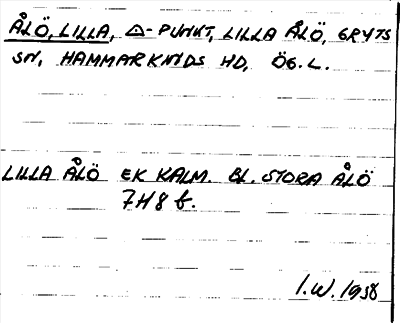 ÅLÖ, LILLA, △-PUNKT, LILLA ÅLÖ, GRYTS
SN, HAMMARKINDS HD, ÖG. L.
LILLA ÅLÖ EK KALM. BL. STORA ÅLÖ
7H8f.
I.W. 1938